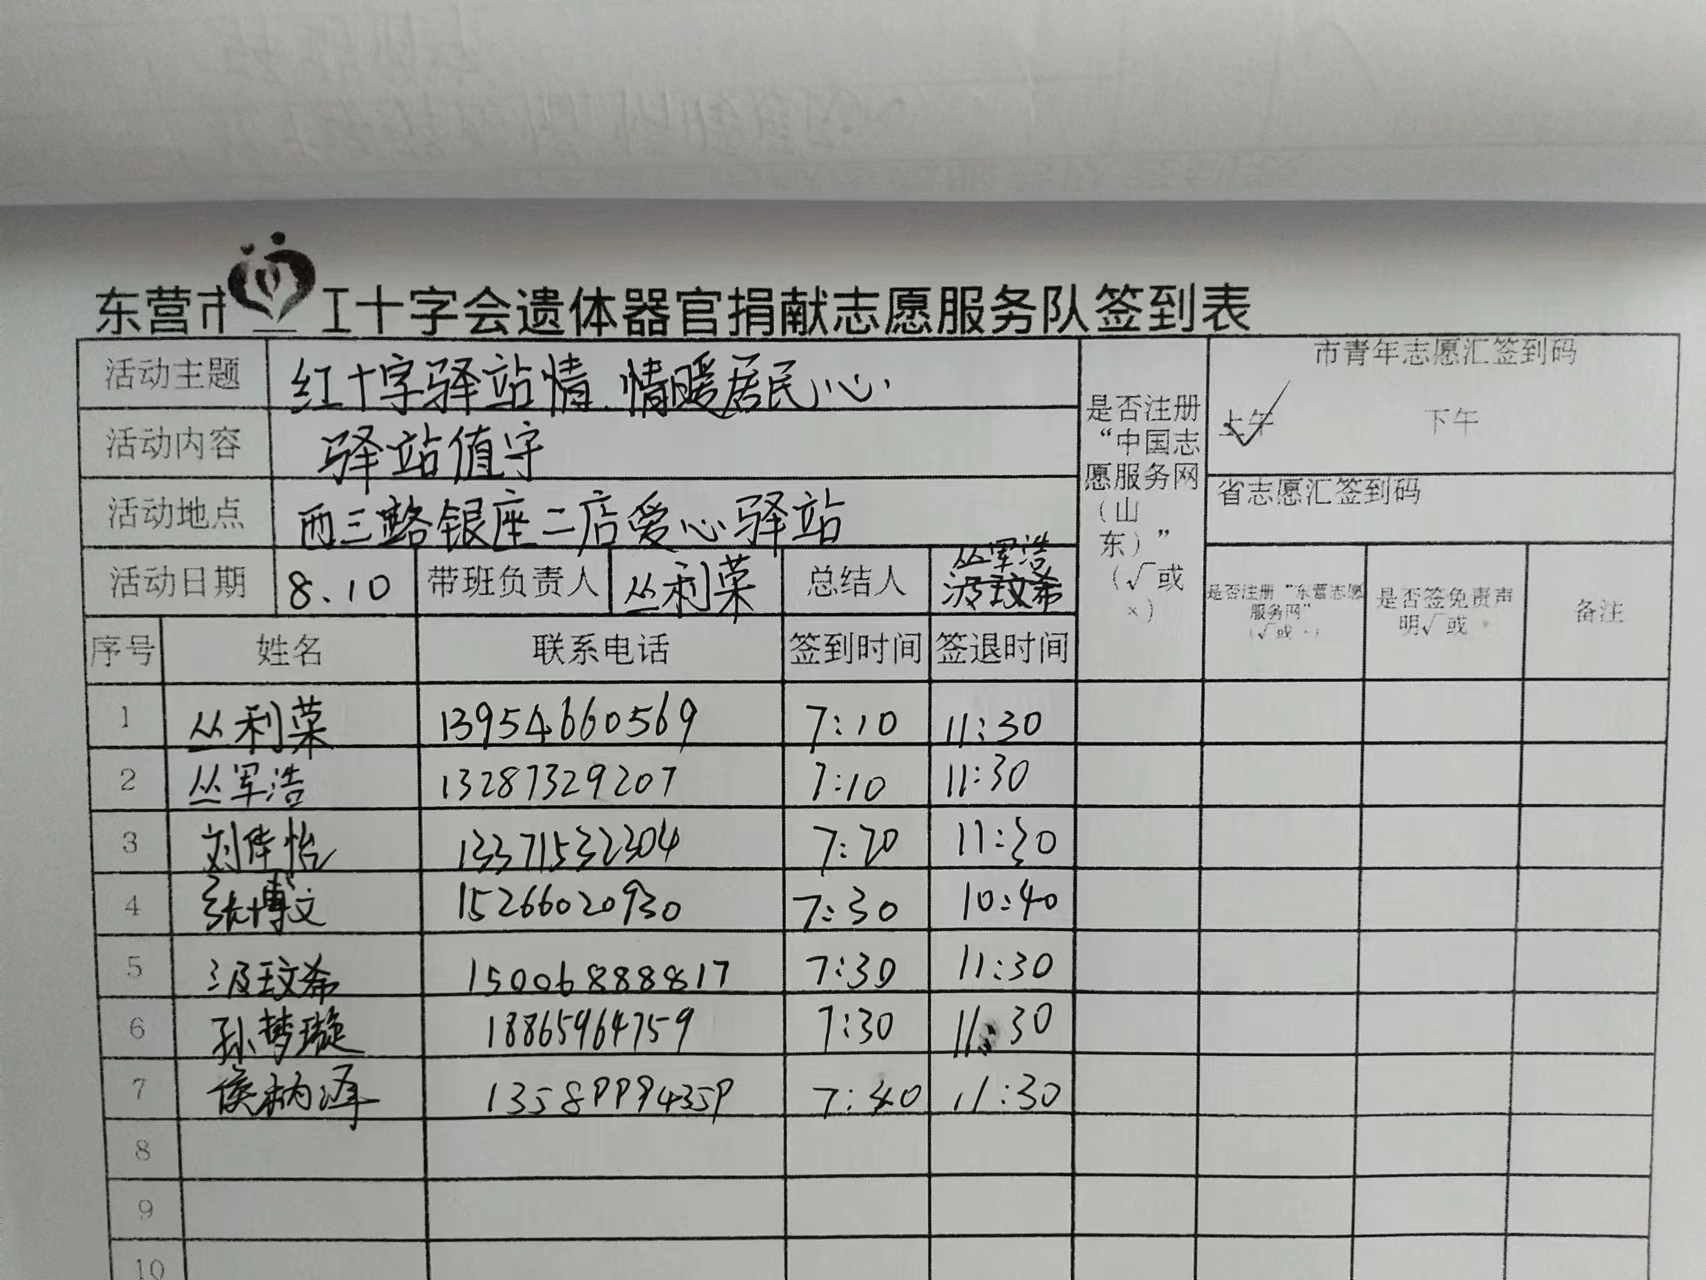 东营市红十字会遗体器官捐献志愿服务队签到表
活动主题 红十字驿站情 情暖居民心 是否注册“中国志愿服务网(山东)”(√或×) 市青年志愿汇签到码
活动内容 驿站值守 上午 下午
活动地点 西三路银座二店爱心驿站 省志愿汇签到码
活动日期 8.10 带班负责人 丛利荣 总结人 丛军浩 汲玟希 是否注册“东营志愿服务网”(√或×) 是否签免责声明√或× 备注
序号 姓名 联系电话 签到时间 签退时间
1 丛利荣 13954660569 7:10 11:30
2 丛军浩 13287329207 7:10 11:30
3 刘倖怡 13371532304 7:20 11:30
4 张博文 15266020930 7:30 10:40
5 汲玟希 15006888817 7:30 11:30
6 孙梦璇 18865964759 7:30 11:30
7 侯柄泽 13589994359 7:40 11:30
8
9
10